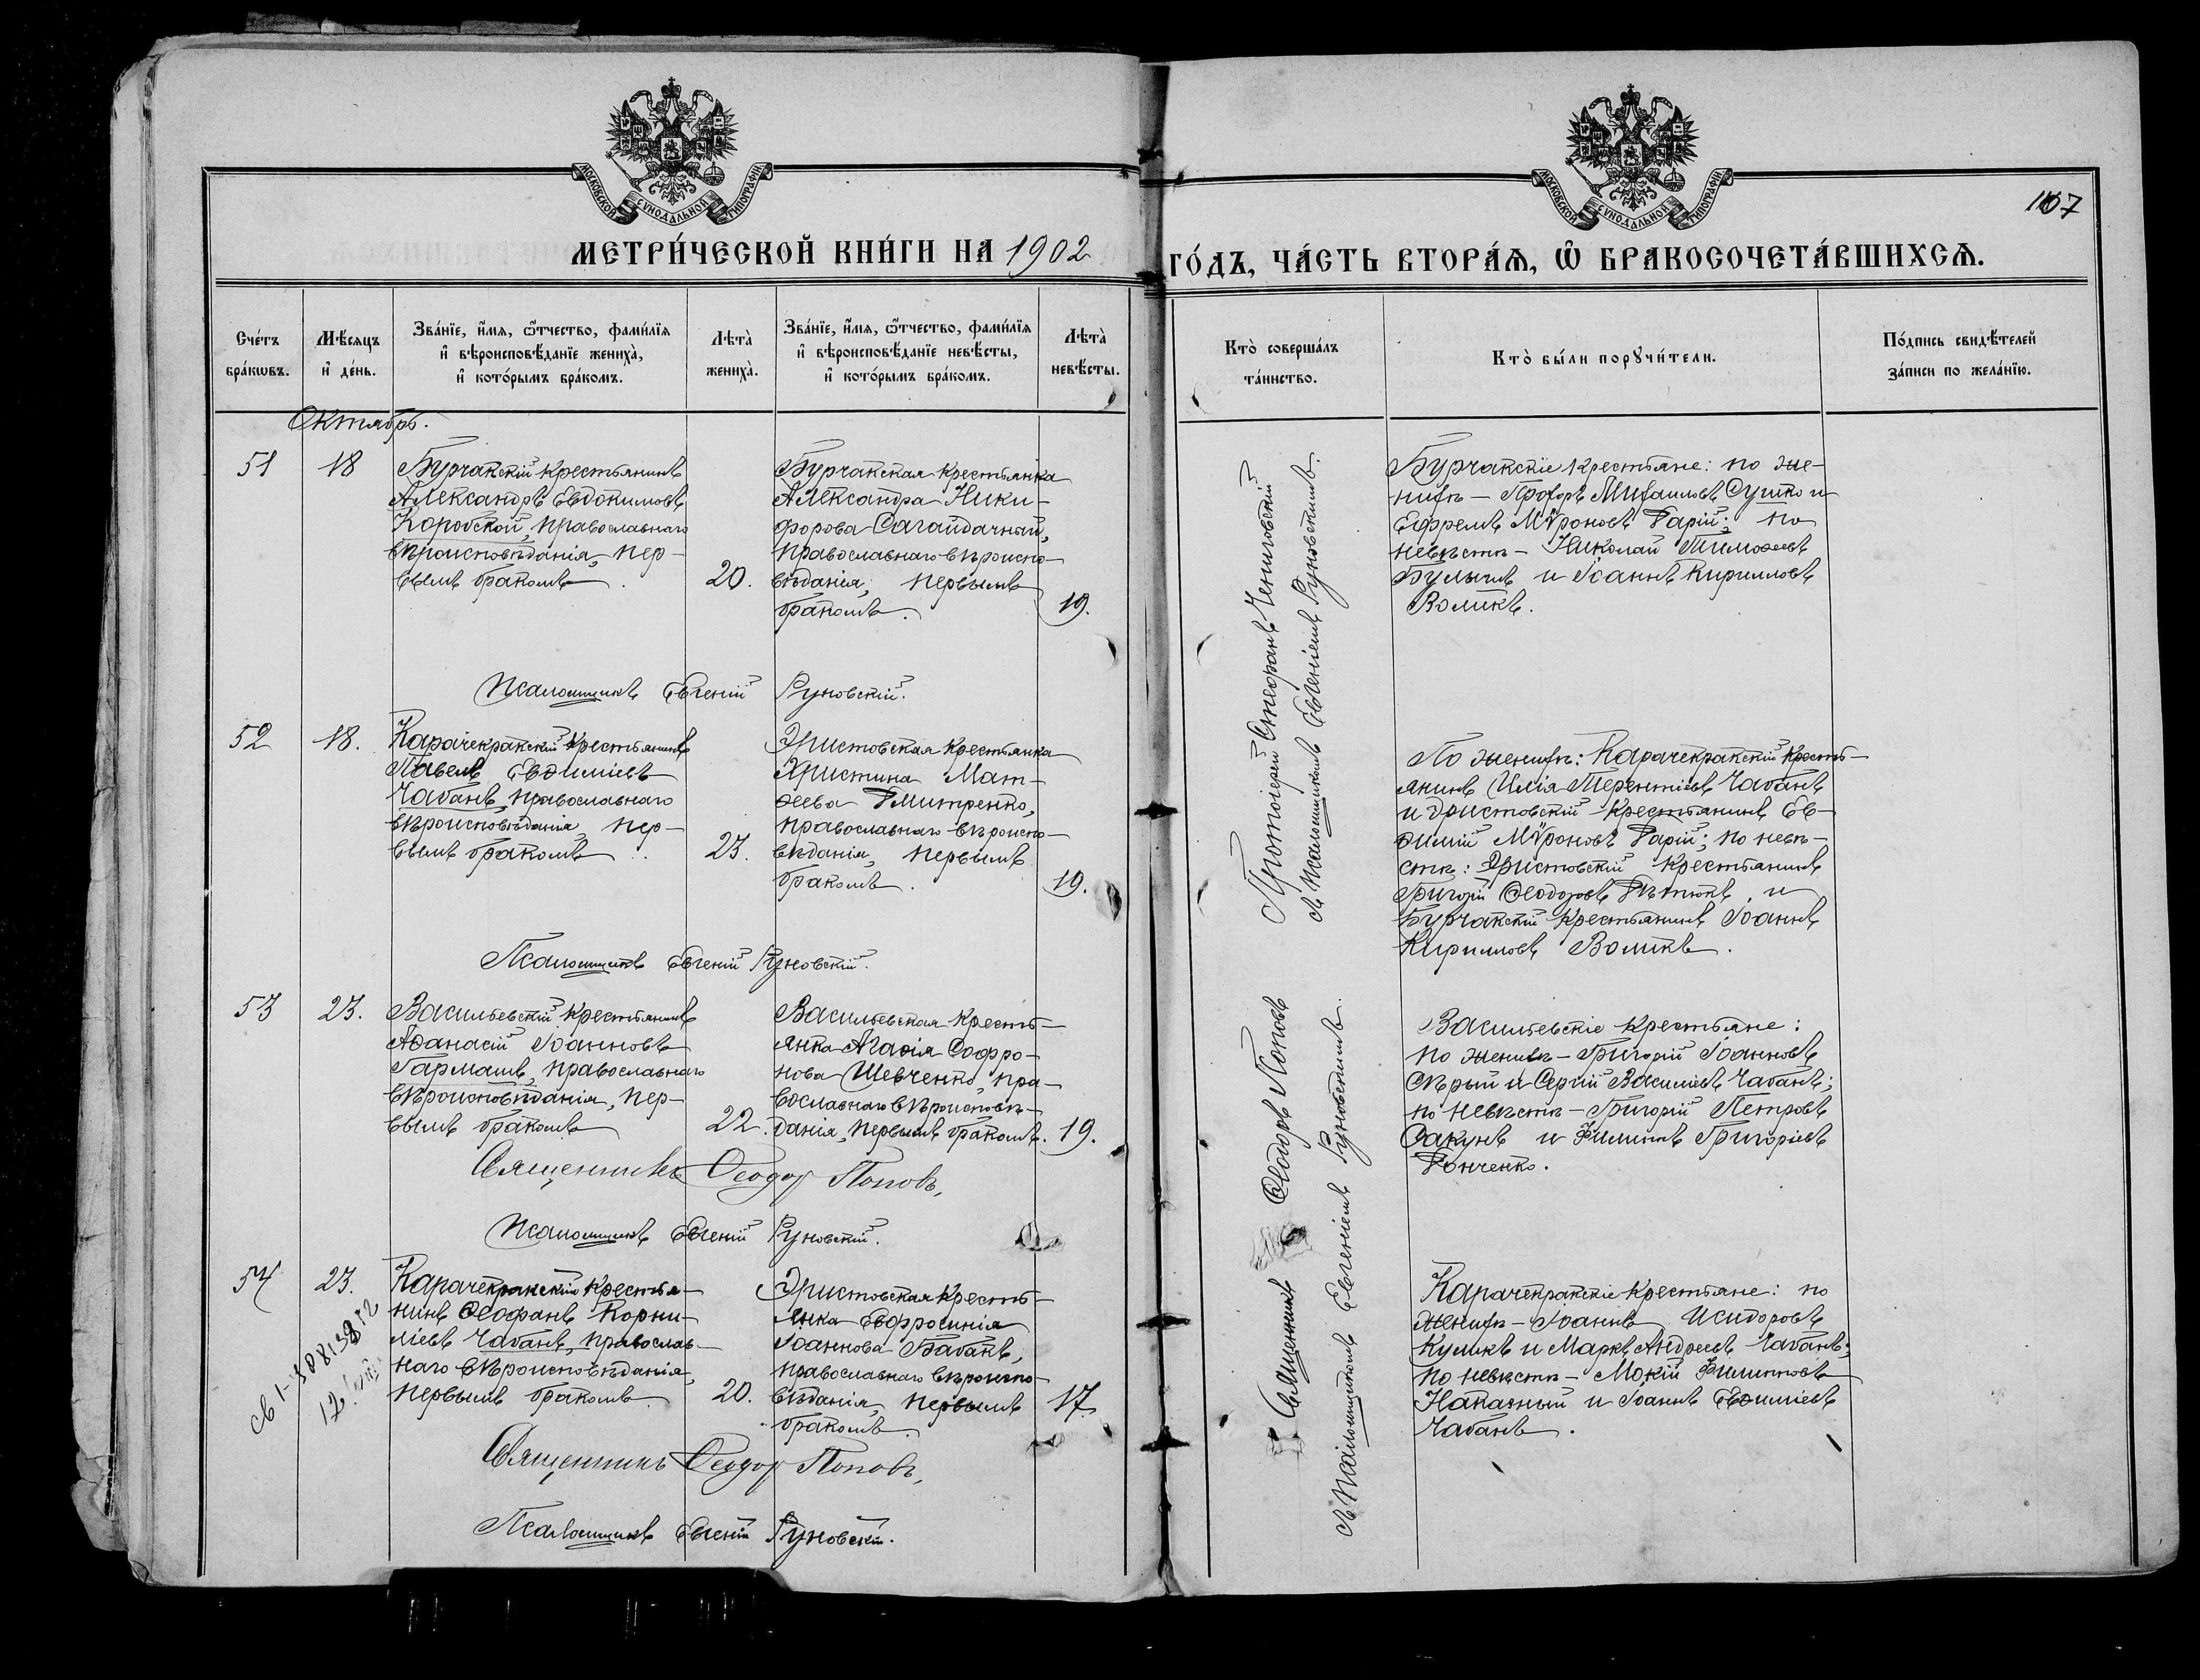 МОСКОВСКОЙ СѴНОДАЛЬНОЙ ТИПОГРАФІИ
МОСКОВСКОЙ СѴНОДАЛЬНОЙ ТИПОГРАФІИ
107
МЕТРИ́ЧЕСКОЙ КНИ́ГИ НА 1902 ГО́ДЪ, ЧА́СТЬ ВТОРА́Ѧ, Ѡ҆ БРАКОСОЧЕТА́ВШИХСѦ.
Сче́тъ
бра́кѡвъ.
Мѣ́сѧцъ
и҆ де́нь.
Зва́нїе, и҆́мѧ, ѻ҆́тчество, фами́лїѧ
и҆ вѣроисповѣ́данїе жениха̀,
и҆ кото́рымъ бра́комъ.
Лѣта̀
жениха̀.
Зва́нїе, и҆́мѧ, ѻ҆́тчество, фами́лїѧ
и҆ вѣроисповѣ́данїе невѣ́сты,
и҆ кото́рымъ бра́комъ.
Лѣта̀
невѣ́сты.
Кто̀ соверша́лъ
та́инство.
Кто̀ бы́ли порꙋчи́тели.
По́дпись свидѣ́телей
за́писи по жела́нїю.
Октябрь.
51
18
Бурчакскій крестьянинъ
Александръ Евдокимовъ
Коробской, православнаго
вѣроисповѣданія, пер-
вымъ бракомъ.
20.
Бурчакская крестьянка
Александра Ники-
форова Сагайдачный,
православнаго вѣроиспо-
вѣданія, первымъ
бракомъ.
19.
Протоіерей Стефанъ
съ псаломщикомъ Евгеніемъ Руновскимъ.
Бурчакскіе крестьяне: по же-
нихѣ – Прохоръ Михаиловъ Сушко и
Ефремъ Мѵроновъ Гарій; по
невѣстѣ – Николай Тимоѳеевъ
и Іоаннъ Кирилловъ
Воликъ.
Псаломщикъ Евгеній Руновскій.
52
18.
Карачекракскій крестьянинъ
Павелъ Евѳиміевъ
Чабанъ, православнаго
вѣроисповѣданія, пер-
вымъ бракомъ.
23.
Эристовская крестьянка
Христина Мат-
ѳеева Дмитренко,
православнаго вѣроиспо-
вѣданія, первымъ
бракомъ.
19.
По женихѣ: Карачекракскій кресть-
янинъ Илія Терентіевъ Чабанъ
и Эристовскій крестьянинъ Ев-
ѳимій Мѵроновъ Гарій; по невѣ-
стѣ: Эристовскій крестьянинъ
Григорій Ѳеодоровъ и
Бурчакскій крестьянинъ Іоаннъ
Кирилловъ Воликъ.
Псаломщикъ Евгеній Руновскій.
53
23.
Васильевскій крестьянинъ
Аѳанасій Іоанновъ
Гармашъ, православнаго
вѣроисповѣданія, пер-
вымъ бракомъ
22.
Васильевская кресть-
янка Агаѳія Софро-
нова Шевченко, пра-
вославнаго вѣроисповѣ-
данія, первымъ бракомъ.
19.
Священникъ Ѳеодоръ Поповъ
съ псаломщикомъ Евгеніемъ Руновскимъ.
Васильевскіе крестьяне:
по женихѣ – Григорій Іоанновъ
Сѣрый и Сергій Василіевъ Чабанъ;
по невѣстѣ – Григорій Петровъ
Сакунъ и Филиппъ Григоріевъ
Гонченко.
Священникъ Ѳеодоръ Поповъ,
Псаломщикъ Евгеній Руновскій.
54
23.
Карачекракскій крестья-
нинъ Ѳеофанъ Корни-
ліевъ Чабанъ, православ-
наго вѣроисповѣданія,
первымъ бракомъ.
20.
Эристовская кресть-
янка Евфросинія
Іоаннова Бабакъ,
православнаго вѣроиспо-
вѣданія, первымъ
бракомъ.
17.
Карачекракскіе крестьяне: по
женихѣ – Іоаннъ Исидоровъ
Куликъ и Маркъ Андреевъ Чабанъ;
по невѣстѣ – Мокій Филипповъ
Наказный и Іоаннъ Евѳиміевъ
Чабанъ.
Священникъ Ѳеодоръ Поповъ,
Псаломщикъ Евгеній Руновскій.